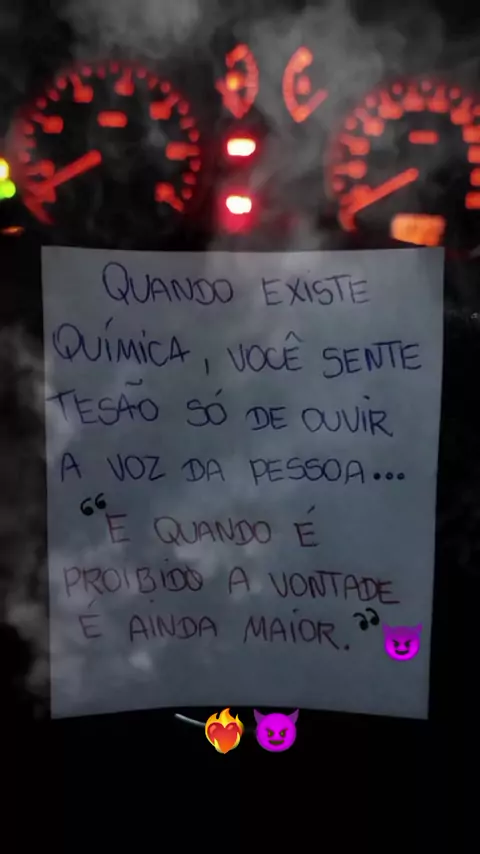 QUANDO EXISTE
QUÍMICA, VOCÊ SENTE
TESÃO SÓ DE OUVIR
A VOZ DA PESSOA...
“E QUANDO É
PROIBIDO A VONTADE
É AINDA MAIOR.”